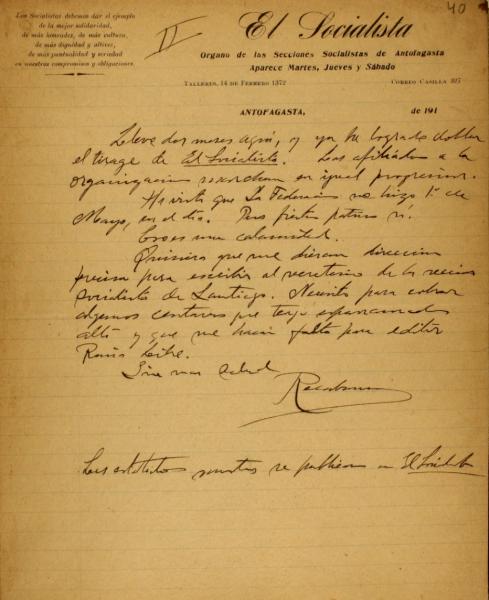 Los Socialistas debemos dar el ejemplo
de la mejor solidaridad,
de más honradez, de más cultura,
de más dignidad y altivez,
de más puntualidad y seriedad
en nuestros compromisos y obligaciones.
II
40
El Socialista
Organo de las Secciones Socialistas de Antofagasta
Aparece Martes, Jueves y Sábado
Talleres, 14 de Febrero 1372
Correo Casilla
Antofagasta,
de 191
Llevo dos meses aquí, y ya he logrado doblar
el tirage de El Socialista. Los afiliados a la
organizacion marchan en igual progresion.
He visto que La Federacion no hizo 1º de
Mayo, en el día. Pero fiestas patrias si.
Eso es una calamidad.
Quisiera que me dieran direccion
precisa para escribir al secretario de la seccion
socialista de Santiago. Necesito para cobrar
algunos centavos que tengo
allá y que me hacen falta para editar
Sin mas salud
Recabarren
Los estatutos se publican en El Socialista